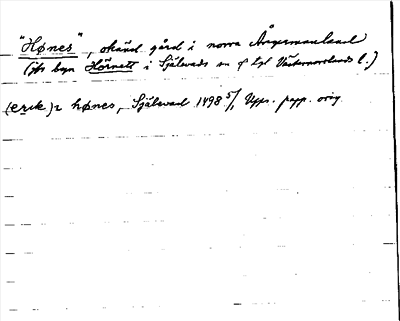 "Hønes", okänd gård i norra Ångermanland
(jfr byn Hörnett i Själevads sn o lgl Västernorrlands l.)
(erik) i hønes, Själevad 1498 5/1 Upps. papp. orig.